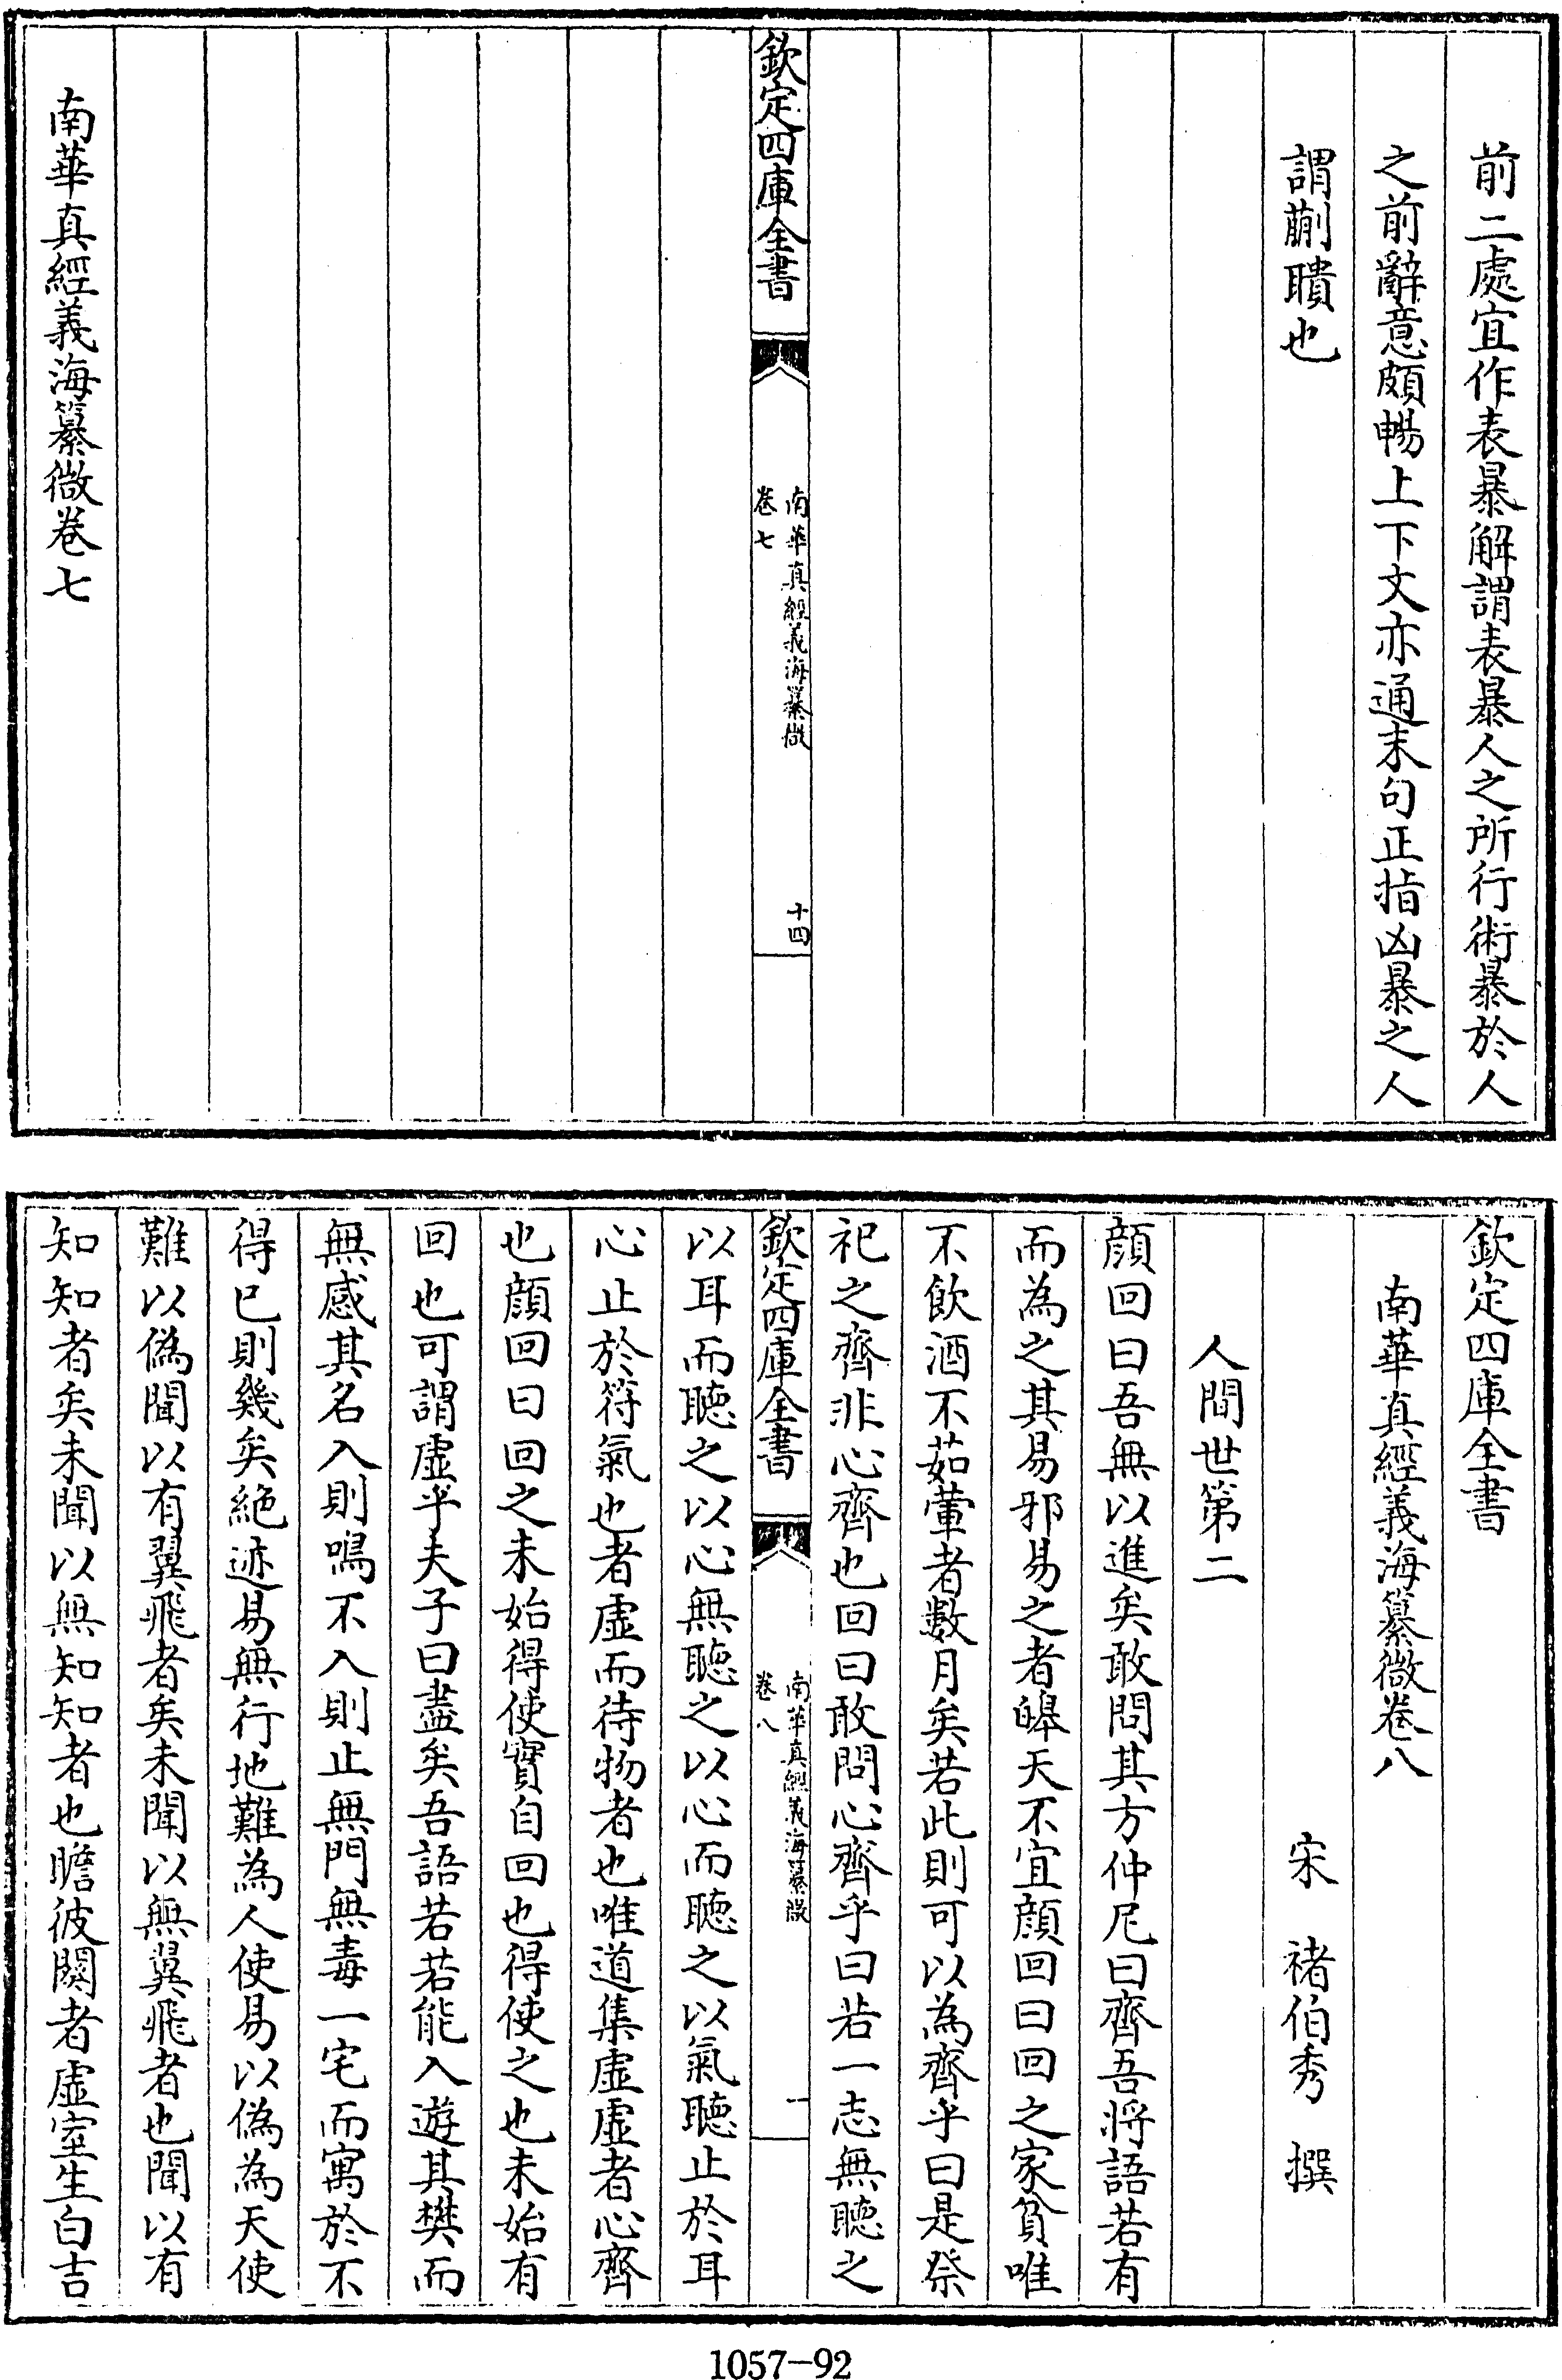 前二處宜作表暴解謂表暴人之所行術暴於人
之前辭意頗暢上下文亦通末句正指凶暴之人
謂蒯聵也
欽定四庫全書
南華真經義海纂微
卷七
十四
南華真經義海纂微卷七
欽定四庫全書
南華真經義海纂微卷八
宋 褚伯秀 撰
人間世第二
顏回曰吾無以進矣敢問其方仲尼曰齊吾將語若有
而為之其易邪易之者皞天不宜顏回曰回之家貧唯
不飲酒不茹葷者數月矣若此則可以為齊乎曰是祭
祀之齊非心齊也回曰敢問心齊乎曰若一志無聽之
欽定四庫全書
南華真經義海纂微
卷八
一
以耳而聽之以心無聽之以心而聽之以氣聽止於耳
心止於符氣也者虛而待物者也唯道集虛虛者心齊
也顏回曰回之未始得使實自回也得使之也未始有
回也可謂虛乎夫子曰盡矣吾語若若能入遊其樊而
無感其名入則鳴不入則止無門無毒一宅而寓於不
得已則幾矣絶迹易無行地難為人使易以偽為天使
難以偽聞以有翼飛者矣未聞以無翼飛者也聞以有
知知者矣未聞以無知知者也瞻彼闋者虛室生白吉
1057-92